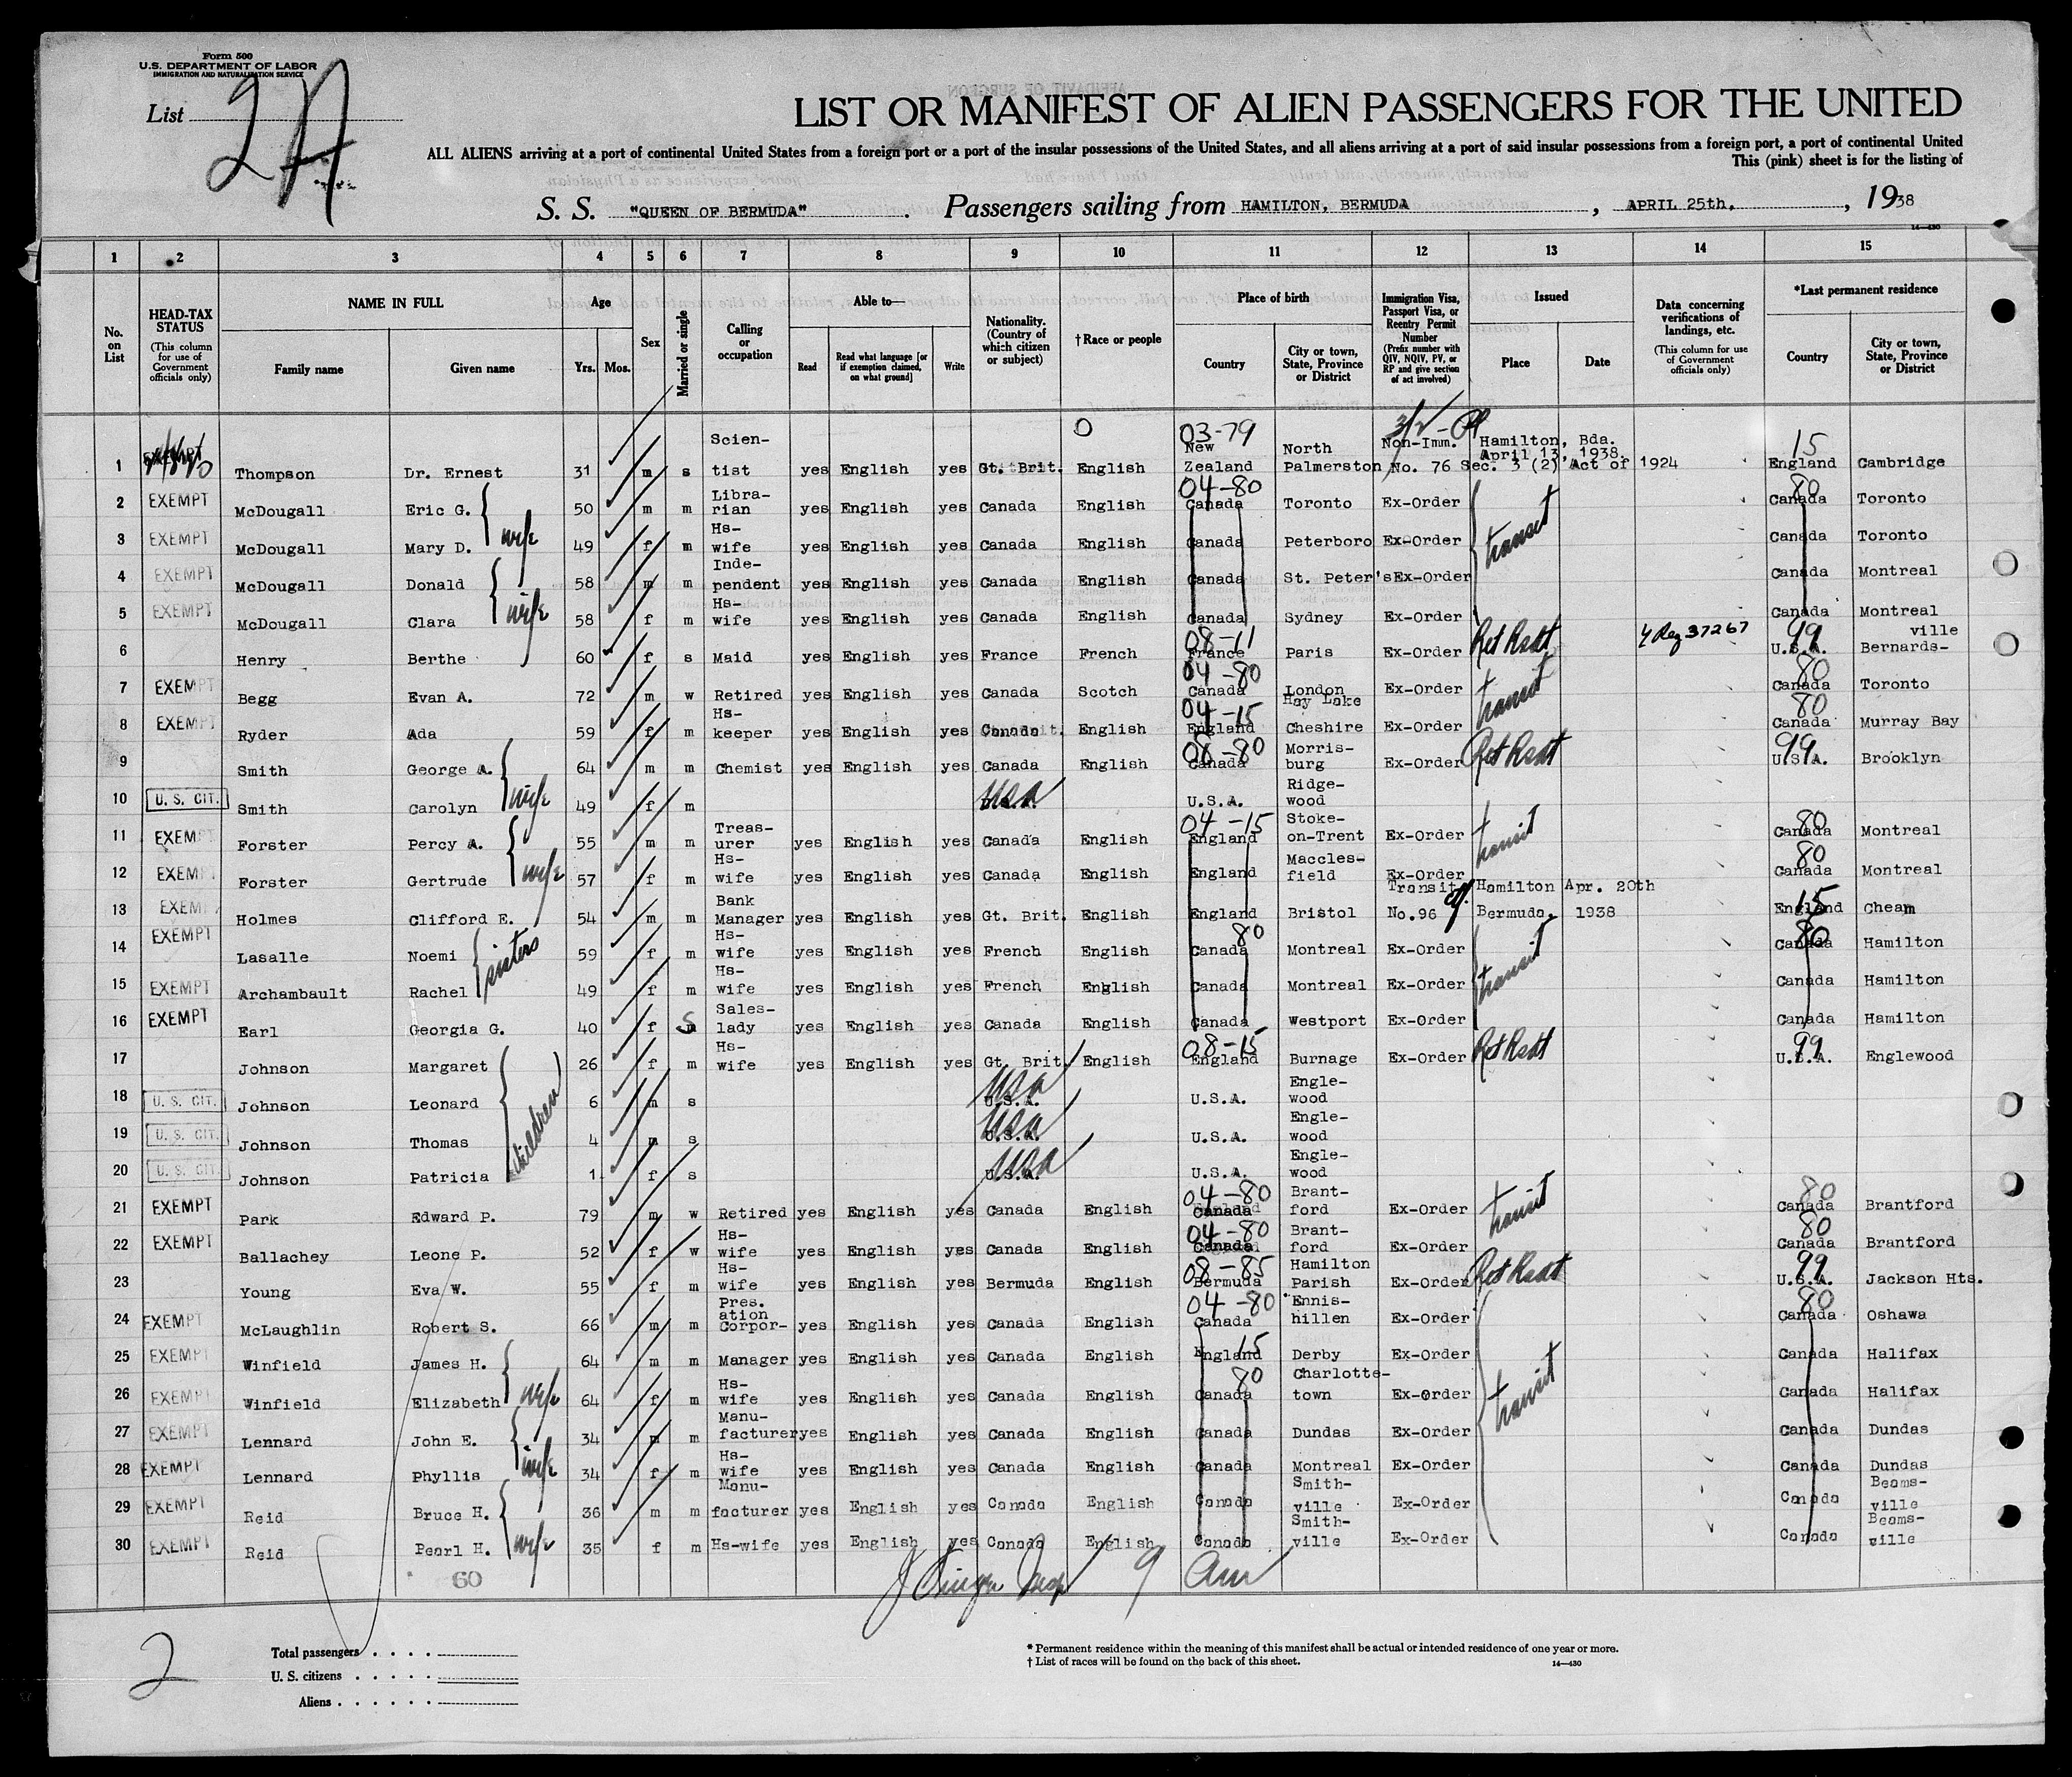 Form 500
U.S. DEPARTMENT OF LABOR
IMMIGRATION AND NATURALIZATION SERVICE
List 2A
LIST OR MANIFEST OF ALIEN PASSENGERS FOR THE UNITED
ALL ALIENS arriving at a port of continental United States from a foreign port or a port of the insular possessions of the United States, and all aliens arriving at a port of said insular possessions from a foreign port, a port of continental United
This (pink) sheet is for the listing of
S. S. "QUEEN OF BERMUDA". Passengers sailing from HAMILTON, BERMUDA, APRIL 25th., 1938
14—430
1 2 3 4 5 6 7 8 9 10 11 12 13 14 15
No. on List
HEAD-TAX STATUS (This column for use of Government officials only)
NAME IN FULL Family name Given name
Age Yrs. Mos.
Sex
Married or single
Calling or occupation
Able to— Read Read what language [or if exemption claimed, on what ground] Write
Nationality. (Country of which citizen or subject)
†Race or people
Place of birth Country City or town, State, Province or District
Immigration Visa, Passport Visa, or Reentry Permit Number (Prefix number with QIV, NQIV, PV, or RP and give section of act involved)
Issued Place Date
Data concerning verifications of landings, etc. (This column for use of Government officials only)
*Last permanent residence Country City or town, State, Province or District
1 EXEMPT Thompson Dr. Ernest 31 m s Scien-tist yes English yes Gt. Brit. English 03-79 New Zealand North Palmerston Non-Imm. No. 76 Sec. 3 (2) Act of 1924 Hamilton, Bda. April 13, 1938. 15 England Cambridge
2 EXEMPT McDougall Eric G. 50 m m Libra-rian yes English yes Canada English 04-80 Canada Toronto Ex-Order transit 80 Canada Toronto
3 EXEMPT McDougall Mary D. wife 49 f m Hs-wife yes English yes Canada English Canada Peterboro Ex-Order Canada Toronto
4 EXEMPT McDougall Donald 58 m m Inde-pendent yes English yes Canada English Canada St. Peter's Ex-Order Canada Montreal
5 EXEMPT McDougall Clara wife 58 f m Hs-wife yes English yes Canada English Canada Sydney Ex-Order Canada Montreal
6 Henry Berthe 60 f s Maid yes English yes France French 08-11 France Paris Ex-Order Ret Resdt 4 Reg 37267 99 U.S.A. Bernards-ville
7 EXEMPT Begg Evan A. 72 m w Retired yes English yes Canada Scotch 04-80 Canada London Ex-Order transit 80 Canada Toronto
8 EXEMPT Ryder Ada 59 f m Hs-keeper yes English yes Canada English 04-15 England Hay Lake Cheshire Ex-Order 80 Canada Murray Bay
9 Smith George A. 64 m m Chemist yes English yes Canada English 08-80 Canada Morris-burg Ex-Order Ret Resdt 99 U.S.A. Brooklyn
10 U. S. CIT. Smith Carolyn wife 49 f m USA U.S.A. Ridge-wood
11 EXEMPT Forster Percy A. 55 m m Treas-urer yes English yes Canada English 04-15 England Stoke-on-Trent Ex-Order transit 80 Canada Montreal
12 EXEMPT Forster Gertrude wife 57 f m Hs-wife yes English yes Canada English England Maccles-field Ex-Order 80 Canada Montreal
13 EXEMPT Holmes Clifford E. 54 m m Bank Manager yes English yes Gt. Brit. English England Bristol Transit No.96 Hamilton Bermuda. Apr. 20th 1938 15 England Cheam
14 EXEMPT Lasalle Noemi 59 f m Hs-wife yes English yes French English 80 Canada Montreal Ex-Order transit 80 Canada Hamilton
15 EXEMPT Archambault Rachel sisters 49 f m Hs-wife yes English yes French English Canada Montreal Ex-Order Canada Hamilton
16 EXEMPT Earl Georgia G. 40 f S Sales-lady yes English yes Canada English Canada Westport Ex-Order Canada Hamilton
17 Johnson Margaret 26 f m Hs-wife yes English yes Gt. Brit. English 08-15 England Burnage Ex-Order Ret Resdt 99 U.S.A. Englewood
18 U. S. CIT. Johnson Leonard 6 m s USA U.S.A. U.S.A. Engle-wood
19 U. S. CIT. Johnson Thomas children 4 m s USA U.S.A. U.S.A. Engle-wood
20 U. S. CIT. Johnson Patricia 1 f s USA U.S.A. U.S.A. Engle-wood
21 EXEMPT Park Edward P. 79 m w Retired yes English yes Canada English 04-80 Canada Brant-ford Ex-Order transit 80 Canada Brantford
22 EXEMPT Ballachey Leone P. 52 f w Hs-wife yes English yes Canada English 04-80 Canada Brant-ford Ex-Order 80 Canada Brantford
23 Young Eva W. 55 f m Hs-wife yes English yes Bermuda English 08-85 Bermuda Hamilton Parish Ex-Order Ret Resdt 99 U.S.A. Jackson Hts.
24 EXEMPT McLaughlin Robert S. 66 m m Pres. Corpor-ation yes English yes Canada English 04-80 Canada Ennis-hillen Ex-Order transit 80 Canada Oshawa
25 EXEMPT Winfield James H. 64 m m Manager yes English yes Canada English 15 England Derby Ex-Order Canada Halifax
26 EXEMPT Winfield Elizabeth wife 64 f m Hs-wife yes English yes Canada English 80 Canada Charlotte-town Ex-Order Canada Halifax
27 EXEMPT Lennard John E. 34 m m Manu-facturer yes English yes Canada English Canada Dundas Ex-Order Canada Dundas
28 EXEMPT Lennard Phyllis wife 34 f m Hs-wife yes English yes Canada English Canada Montreal Ex-Order Canada Dundas
29 EXEMPT Reid Bruce H. 36 m m Manu-facturer yes English yes Canada English Canada Smith-ville Ex-Order Canada Beams-ville
30 EXEMPT Reid Pearl H. wife 35 f m Hs-wife yes English yes Canada English Canada Smith-ville Ex-Order Canada Beams-ville
60
2
Total passengers
U. S. citizens
Aliens
* Permanent residence within the meaning of this manifest shall be actual or intended residence of one year or more.
† List of races will be found on the back of this sheet.
14—430